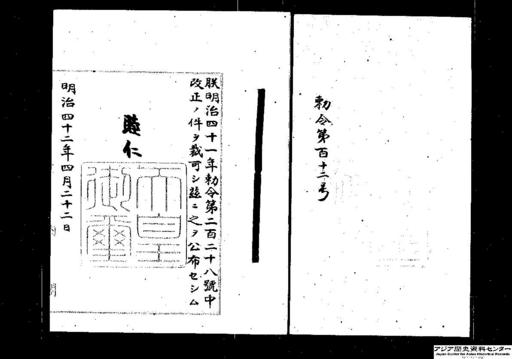 勅令第百十二号
朕明治四十一年勅令第二百二十八號中
改正ノ件ヲ裁可シ茲ニ之ヲ公布セシム
睦仁
天皇御璽
明治四十二年四月二十二日
アジア歴史資料センター
Japan Center for Asian Historical Records